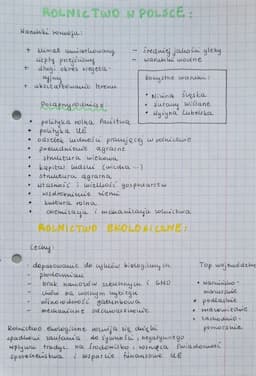 ROLNICTWO W POLSCE:
Warunki rozwoju:
+ klimat umiarkowany ciepły przejściowy
+ długi okres wegetacyjny
+ ukształtowanie terenu
- średniej jakości gleby
- warunki wodne
korzystne warunki:
• Nizina Śląska
• Żuławy Wiślane
• Wyżyna Lubelska
Pozaprzyrodnicze:
• polityka rolna Państwa
• polityka UE
• odsetek ludności pracującej w rolnictwie
• przeludnienie agrarne
• struktura wiekowa
• kapitał ludzki
• struktura agrarna
• własność i wielkość gospodarstw
• rozdrobnienie ziemi
• kultura rolna
• chemizacja i mechanizacja rolnictwa
ROLNICTWO EKOLOGICZNE:
Cechy:
- dopasowanie do cyklów biologicznych
- brak nawozów sztucznych i GMO
- chów na wolnym wybiegu
- różnorodność gatunkowa
- mechaniczne odchwaszczanie
Top województw
• warmińsko-mazurskie
• podlaskie
• mazowieckie
• zachodnio-pomorskie
Rolnictwo ekologiczne rozwija się dzięki
spadkowi zaufania do żywności, negatywnego
wpływu tradyc. na środowisko, rosnąca świadomość
społeczeństwa i wsparcie finansowe UE